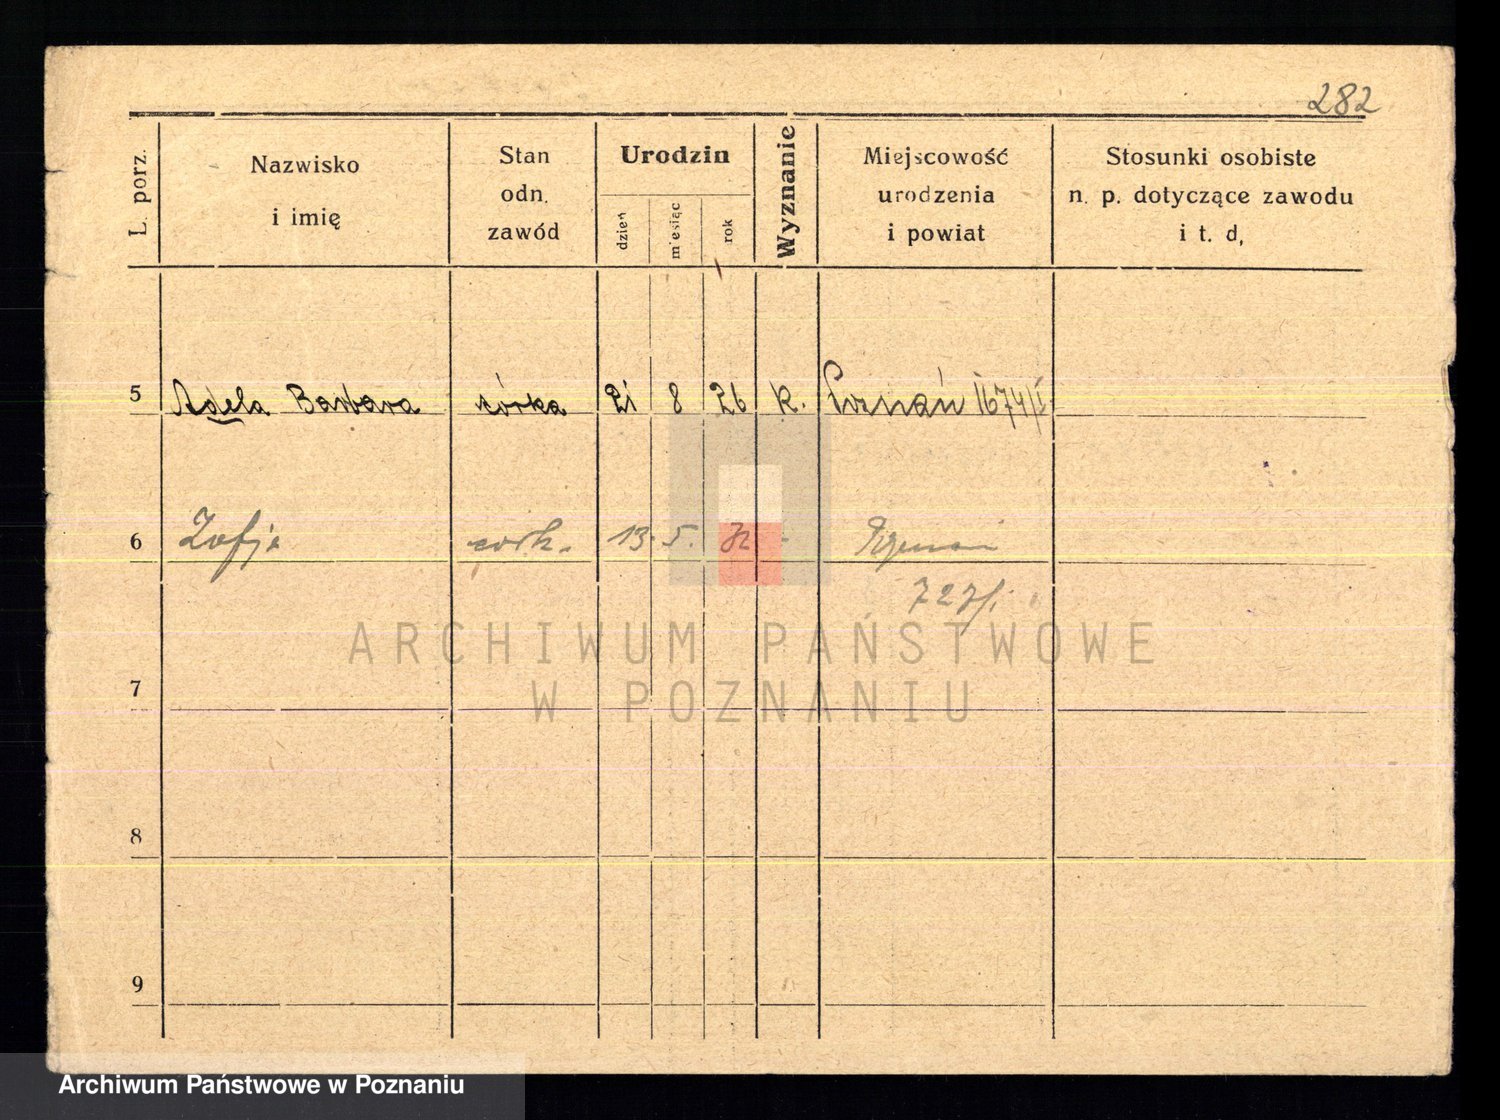 282
L. porz.
Nazwisko
i imię
Stan
odn.
zawód
Urodzin
dzień
miesiąc
rok
Wyznanie
Miejscowość
urodzenia
i powiat
Stosunki osobiste
n. p. dotyczące zawodu
i t. d,
5 Adela Barbara córka 21 8 26 k. Poznań 1674/I
6 Zofja 13. 5. 32 -
ARCHIWUM PAŃSTWOWE
7
W POZNANIU
8
9
Archiwum Państwowe w Poznaniu